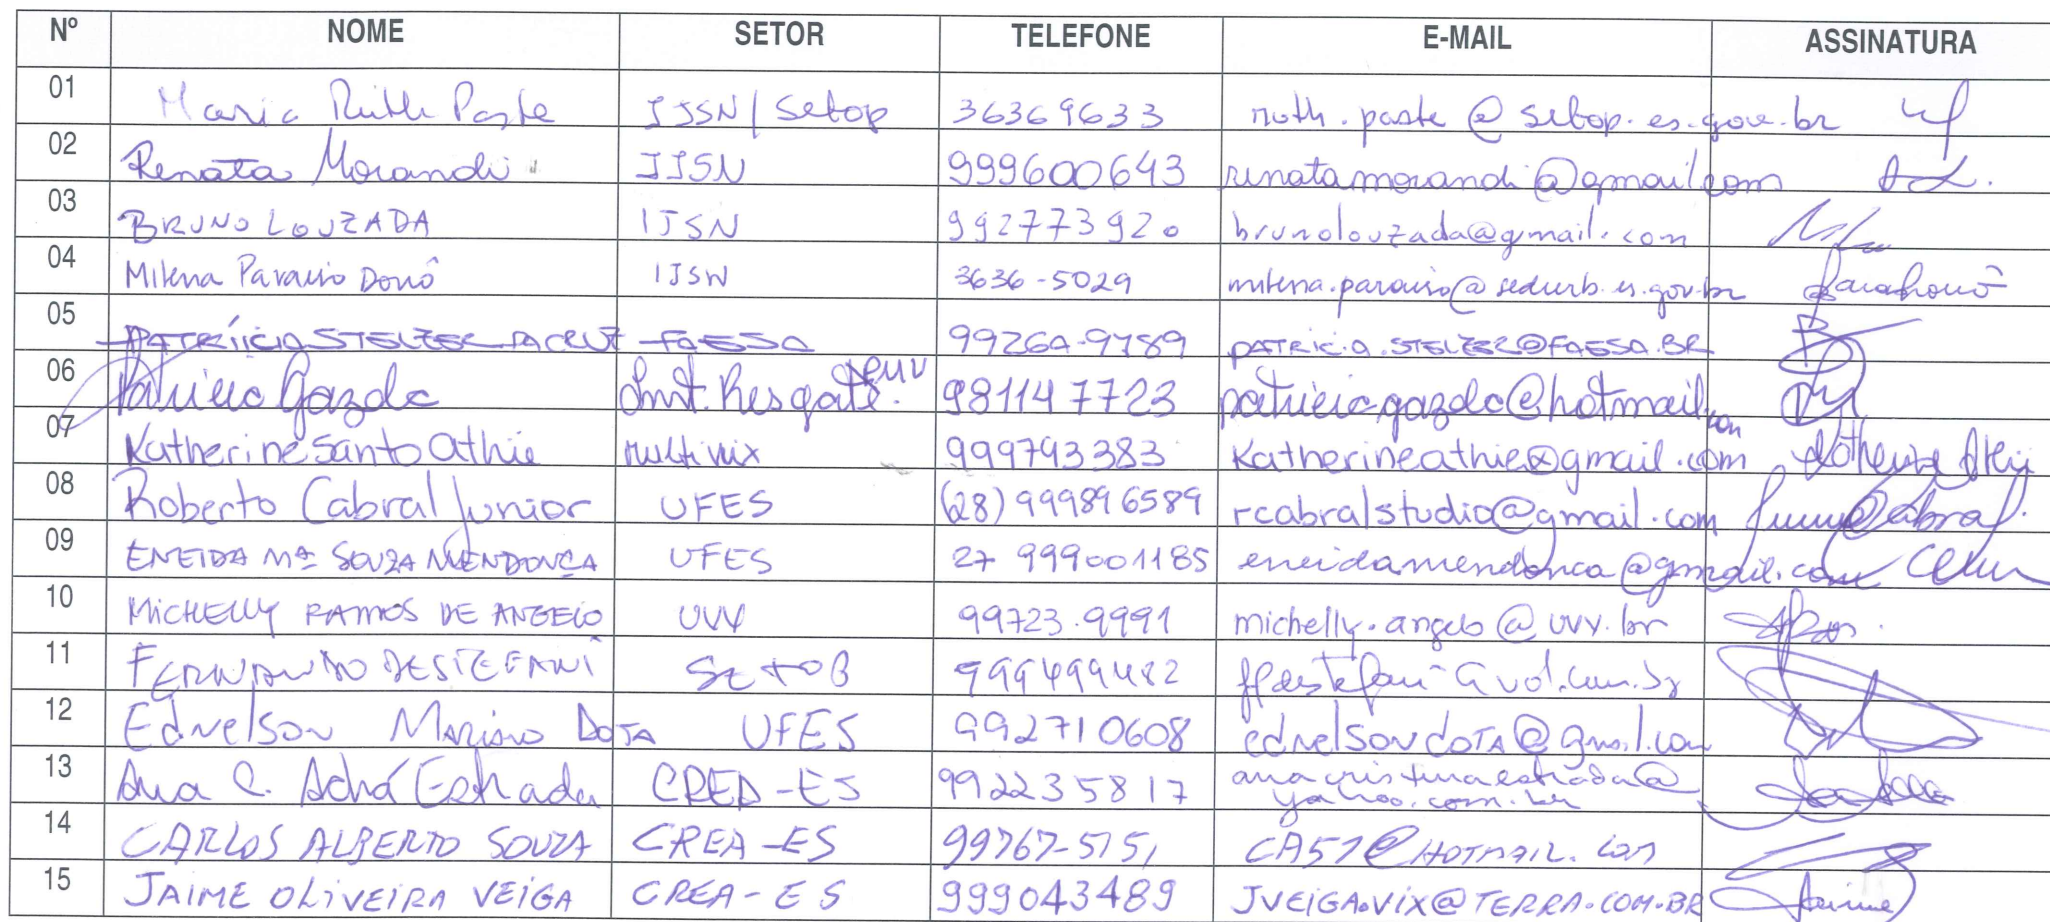 Nº NOME SETOR TELEFONE E-MAIL ASSINATURA
01 Maria Ruth Paste IJSN/Setop 36369633 ruth.paste@setop.es.gov.br
02 Renata Morandi IJSN 999600643 renatamorandi@gmail.com
03 BRUNO LOUZADA IJSN 992773920 brunolouzada@gmail.com
04 Milena Paraiso Donô IJSN 3636-5029 milena.paraiso@sedurb.es.gov.br
05 PATRÍICIA STELZER DA CRUZ - FAESA 99264-9789 PATRICIA.STELZER@FAESA.BR
06 Patricia Gazola Inst. Resgate. 981147723 patriciagazola@hotmail.com
07 Katherine Santo Athié Multivix 999793383 Katherineathie@gmail.com
08 Roberto Cabral Junior UFES (28) 999896589 rcabralstudio@gmail.com
09 ENEIDA Mª SOUZA MENDONÇA UFES 27 999001185 eneidamendonca@gmail.com
10 MICHELLY RAMOS DE ANGELO UVV 99723.9991 michelly.angelo@uvv.br
11 FERNANDO DESTEFANI 999499482
12 Ednelson Mariano DOTA UFES 992710608 ednelsondota@gmail.com
13 Ana C. Achá Estrada CREA-ES 992235817 anacristinaestrada@
yahoo.com.br
14 CARLOS ALBERTO SOUZA CREA-ES 99767-5151 CA57@HOTMAIL.COM
15 JAIME OLIVEIRA VEIGA CREA-ES 999043489 JVEIGA.VIX@TERRA.COM.BR Jaime